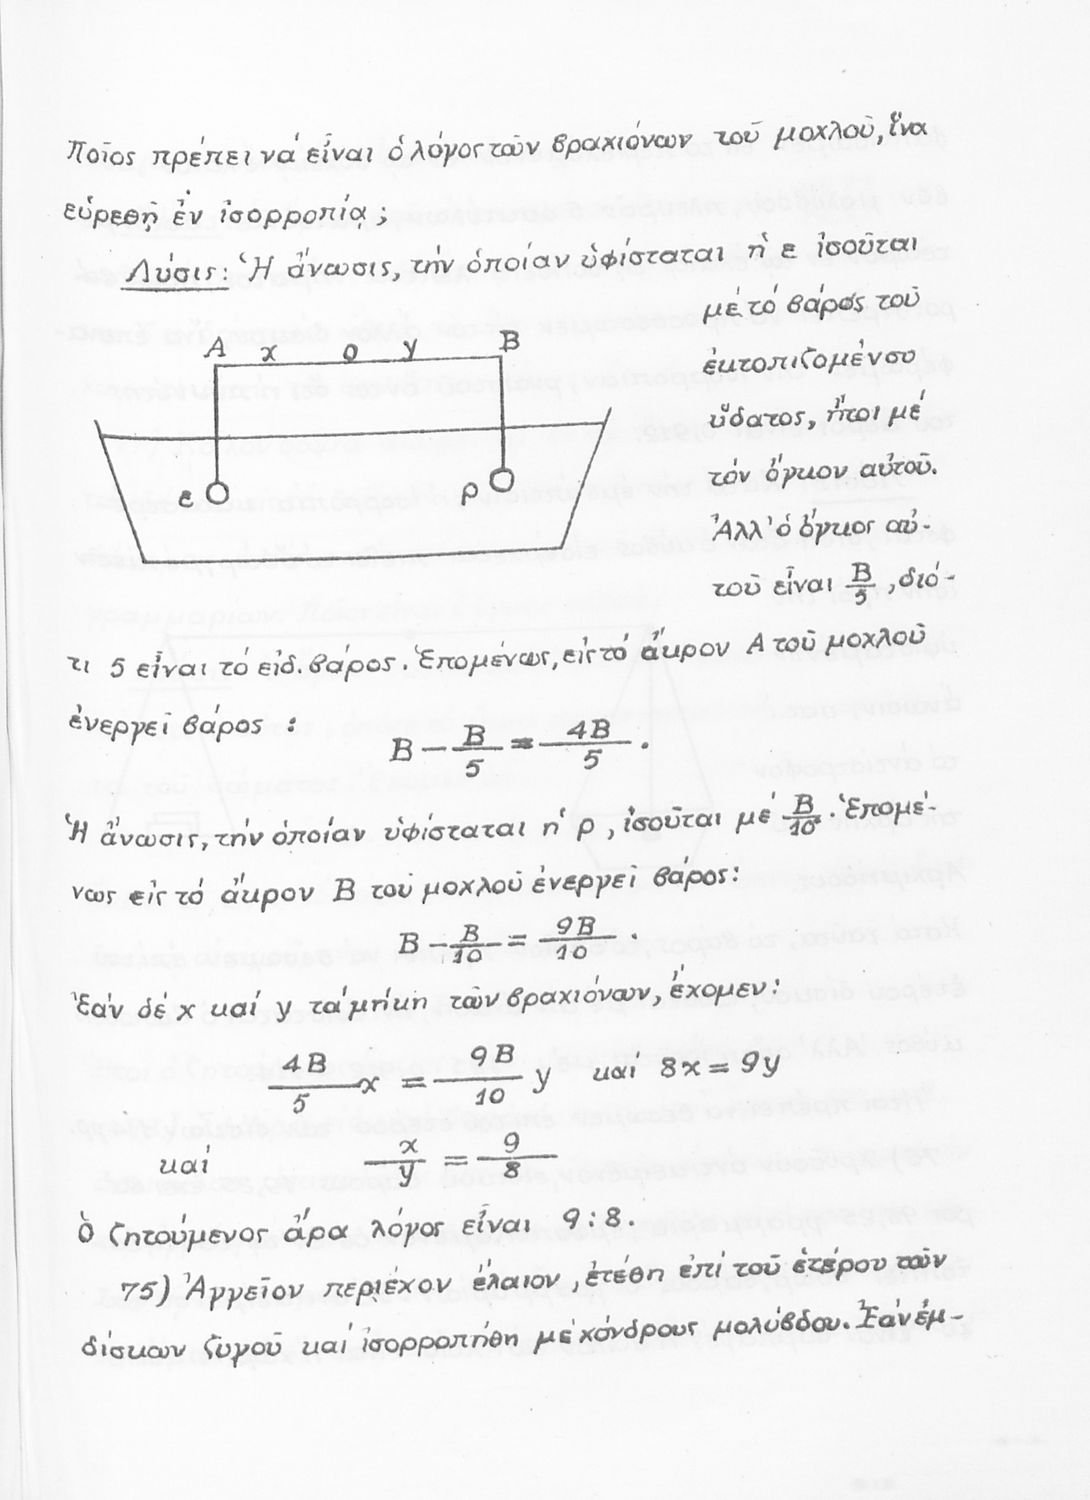 Ποῖος πρέπει νά εἶναι ὁ λόγος τῶν βραχιόνων τοῦ μοχλοῦ, ἵνα
εὑρεθῇ ἐν ἰσορροπίᾳ;
Λύσις: Ἡ ἄνωσις, τήν ὁποίαν ὑφίσταται ἡ ε ἰσοῦται
μέ τό βάρος τοῦ
ἐκτοπιζομένου
ὕδατος, ἤτοι μέ
τόν ὄγκον αὐτοῦ.
Ἀλλ' ὁ ὄγκος αὐ-
τοῦ εἶναι B/5, διό-
A x O y B
ε ρ
τι 5 εἶναι τό εἰδ. βάρος. Ἑπομένως, εἰς τό ἄκρον A τοῦ μοχλοῦ
ἐνεργεῖ βάρος :
B - B/5 = 4B/5 .
Ἡ ἄνωσις, τήν ὁποίαν ὑφίσταται ἡ ρ, ἰσοῦται μέ B/10. Ἑπομέ-
νως εἰς τό ἄκρον B τοῦ μοχλοῦ ἐνεργεῖ βάρος:
B - B/10 = 9B/10 .
Ἐάν δέ x καί y τά μήκη τῶν βραχιόνων, ἔχομεν:
4B/5 x = 9B/10 y καί 8x = 9y
καί x/y = 9/8
Ὁ ζητούμενος ἄρα λόγος εἶναι 9:8.
75) Ἀγγεῖον περιέχον ἔλαιον, ἐτέθη ἐπί τοῦ ἑτέρου τῶν
δίσκων ζυγοῦ καί ἰσορροπήθη μέ χόνδρους μολύβδου. Ἐάν ἐμ-